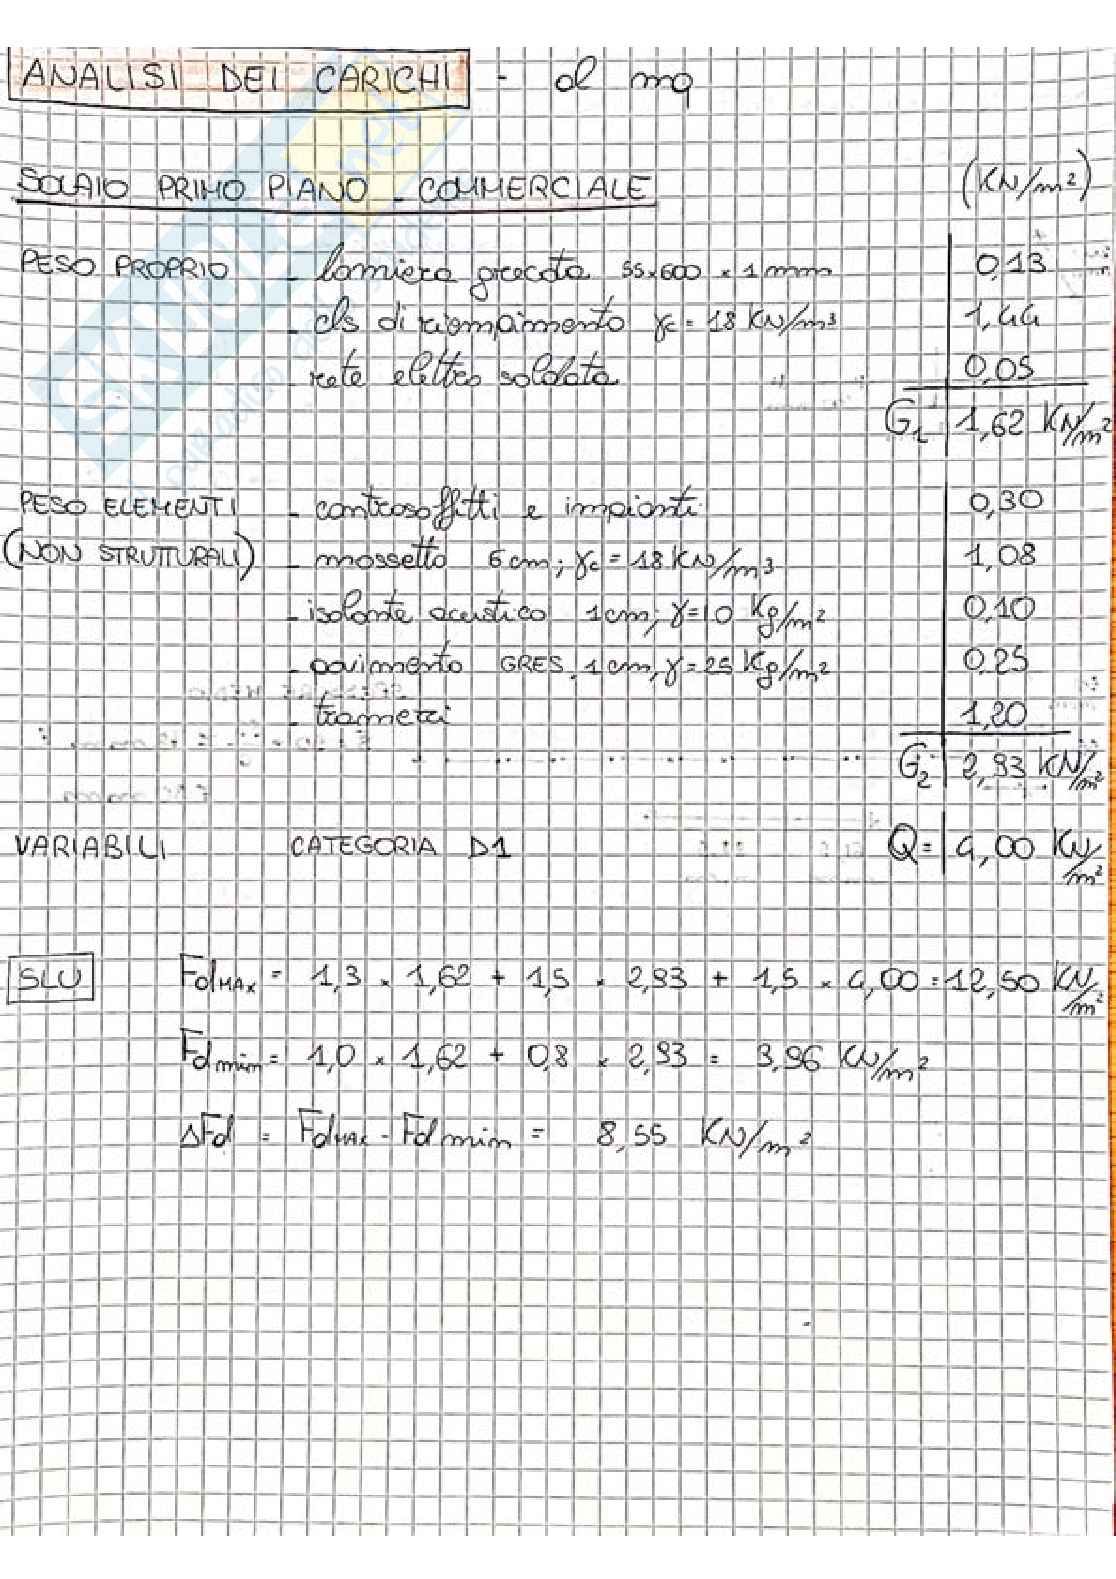 ANALISI DEI CARICHI - al mq
SOLAIO PRIMO PIANO - COMMERCIALE (KN/m²)
PESO PROPRIO - lamiera grecata 55x600 x 1 mm 0,13
- cls di riempimento γc = 18 KN/m³ 1,44
- rete elettro saldata 0,05
G1 1,62 KN/m²
PESO ELEMENTI - controsoffitti e impianti 0,30
(NON STRUTTURALI) - massetto 6cm; γc = 18 KN/m³ 1,08
- isolante acustico 1cm; γ=10 Kg/m² 0,10
- pavimento GRES 1cm, γ=25 Kg/m² 0,25
- tramezzi 1,20
G2 2,93 KN/m²
VARIABILI CATEGORIA D1 Q= 4,00 KN/m²
SLU FdMAX = 1,3 x 1,62 + 1,5 x 2,93 + 1,5 x 4,00 = 12,50 KN/m²
Fdmin = 1,0 x 1,62 + 0,8 x 2,93 = 3,96 KN/m²
ΔFd = FdMAX - Fdmin = 8,55 KN/m²